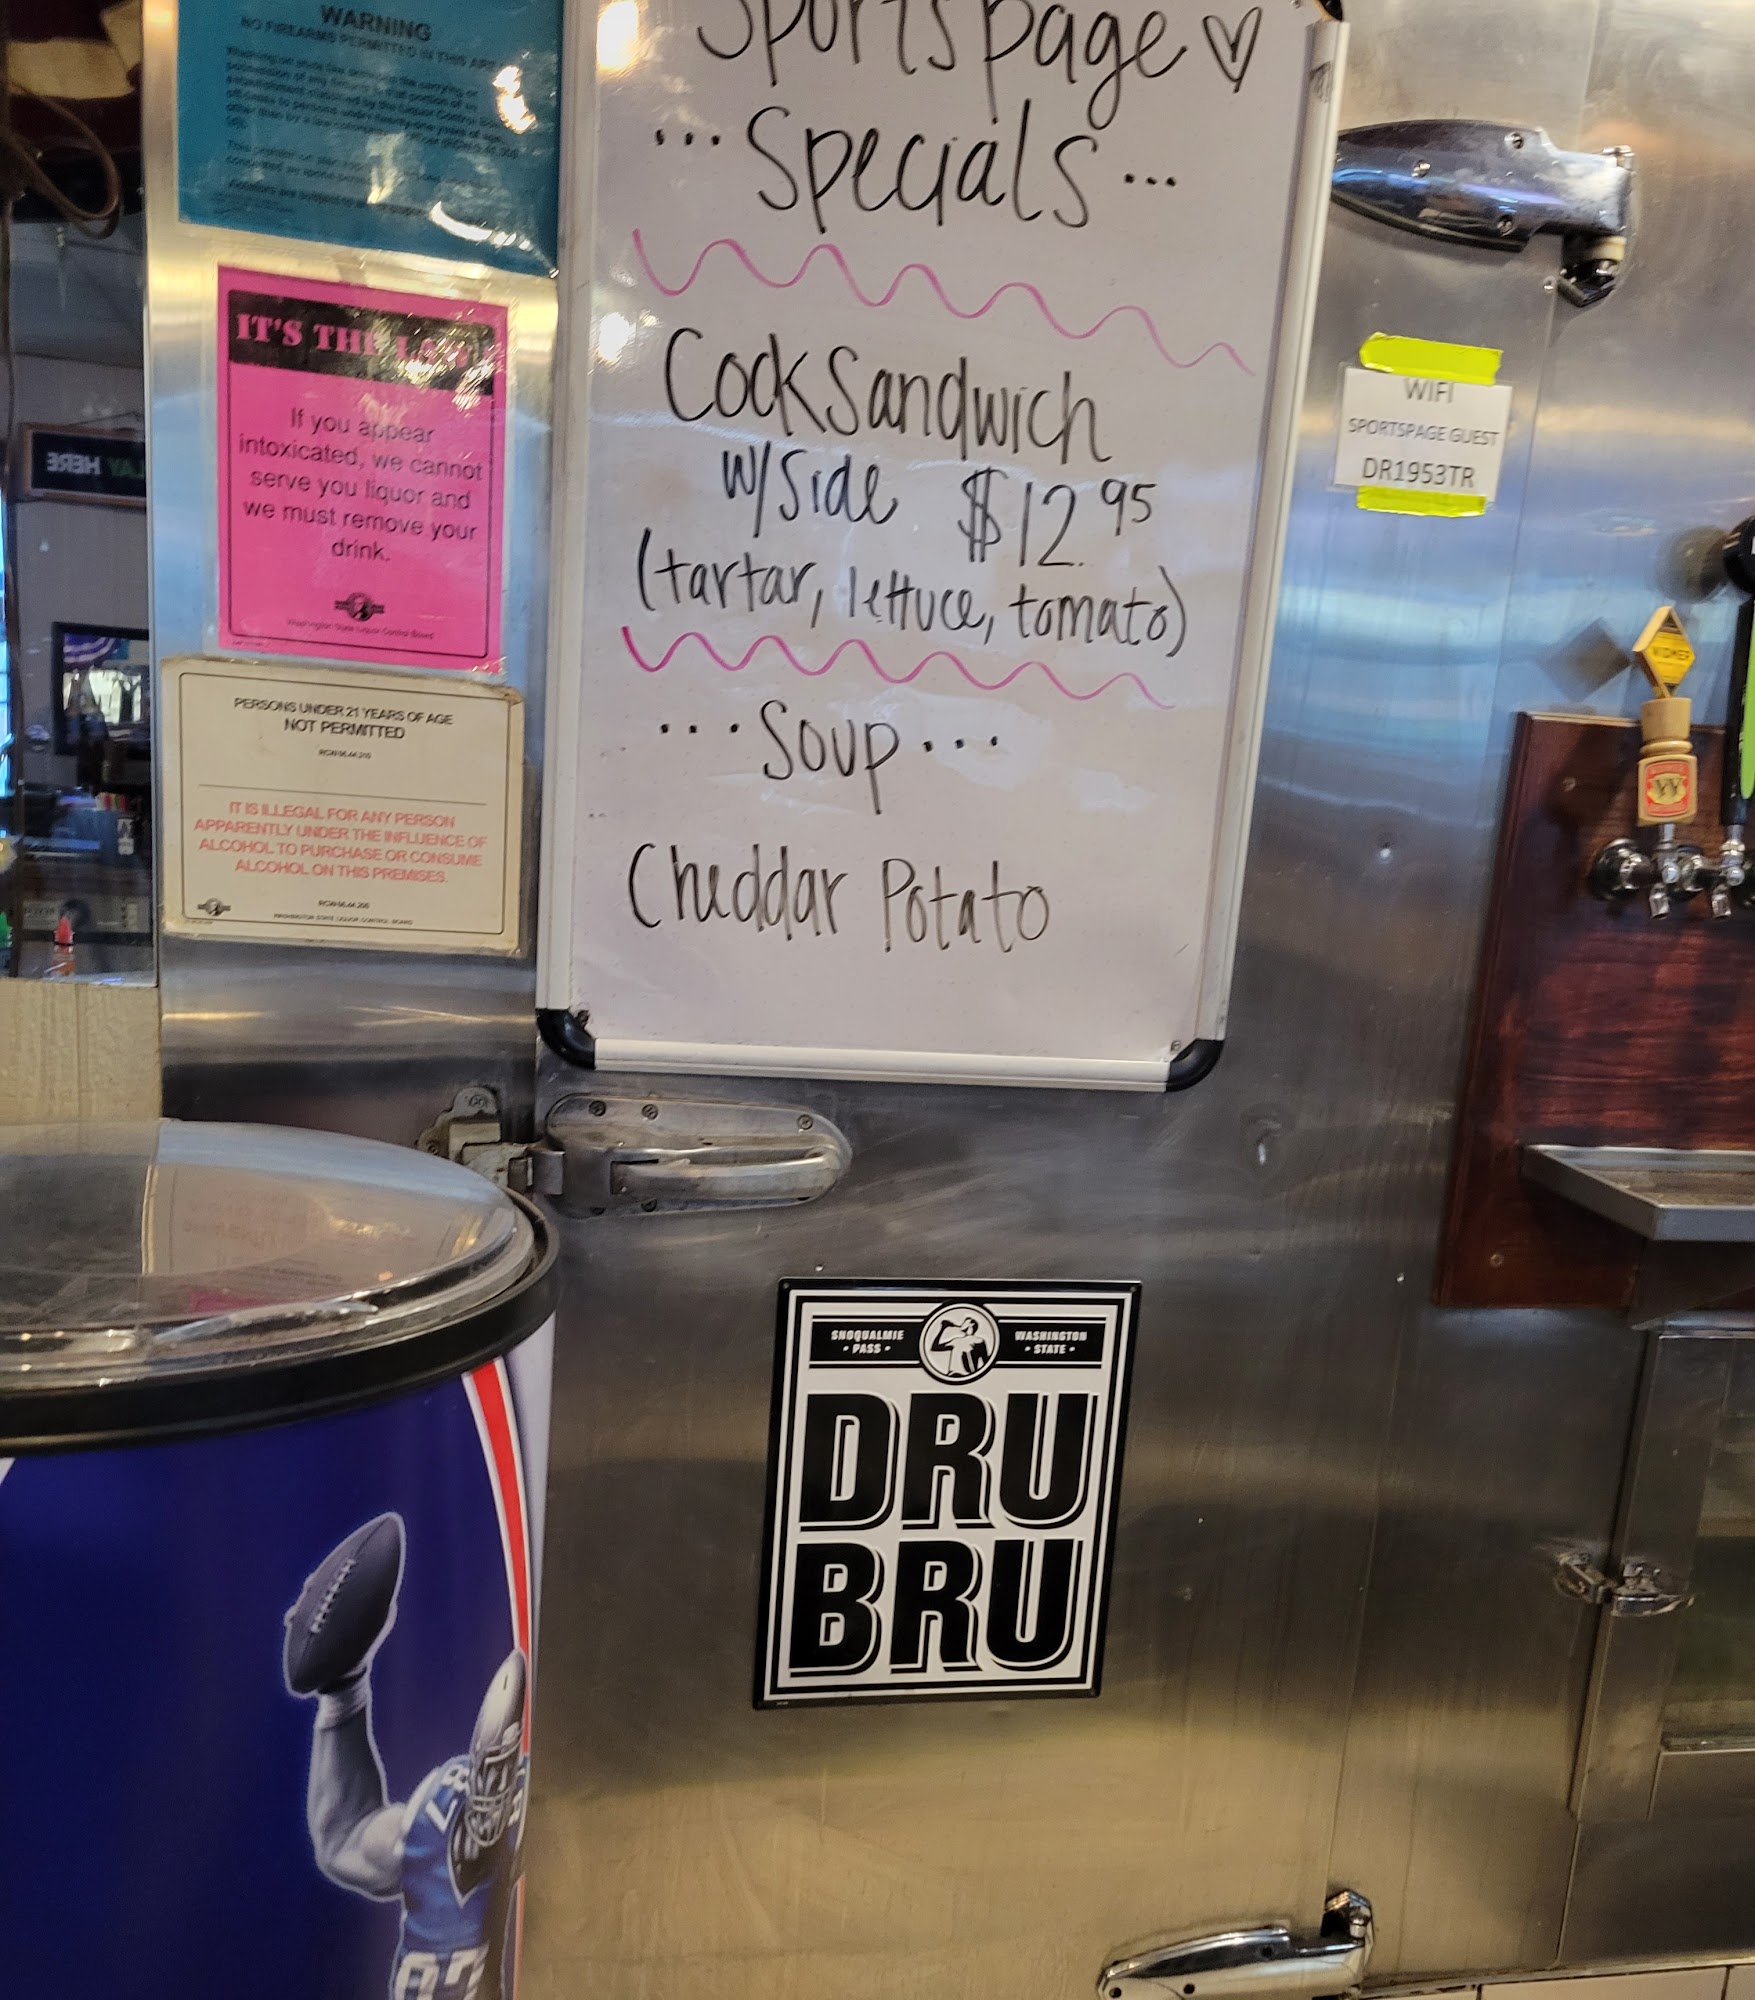 WARNING
NO FIREARMS PERMITTED IN THIS AREA
IT'S THE LAW
If you appear
intoxicated, we cannot
serve you liquor and
we must remove your
drink.
Washington State Liquor Control Board
PERSONS UNDER 21 YEARS OF AGE
NOT PERMITTED
RCW 66.44.310
IT IS ILLEGAL FOR ANY PERSON
APPARENTLY UNDER THE INFLUENCE OF
ALCOHOL TO PURCHASE OR CONSUME
ALCOHOL ON THIS PREMISES.
RCW 66.44.200
WASHINGTON STATE LIQUOR CONTROL BOARD
Sportspage ♡
...Specials...
Cock Sandwich
w/Side $12.95
(tartar, lettuce, tomato)
...Soup...
Cheddar Potato
WIFI
SPORTSPAGE GUEST
DR1953TR
WIDMER
SNOQUALMIE
• PASS •
WASHINGTON
• STATE •
DRU
BRU
87
HERE